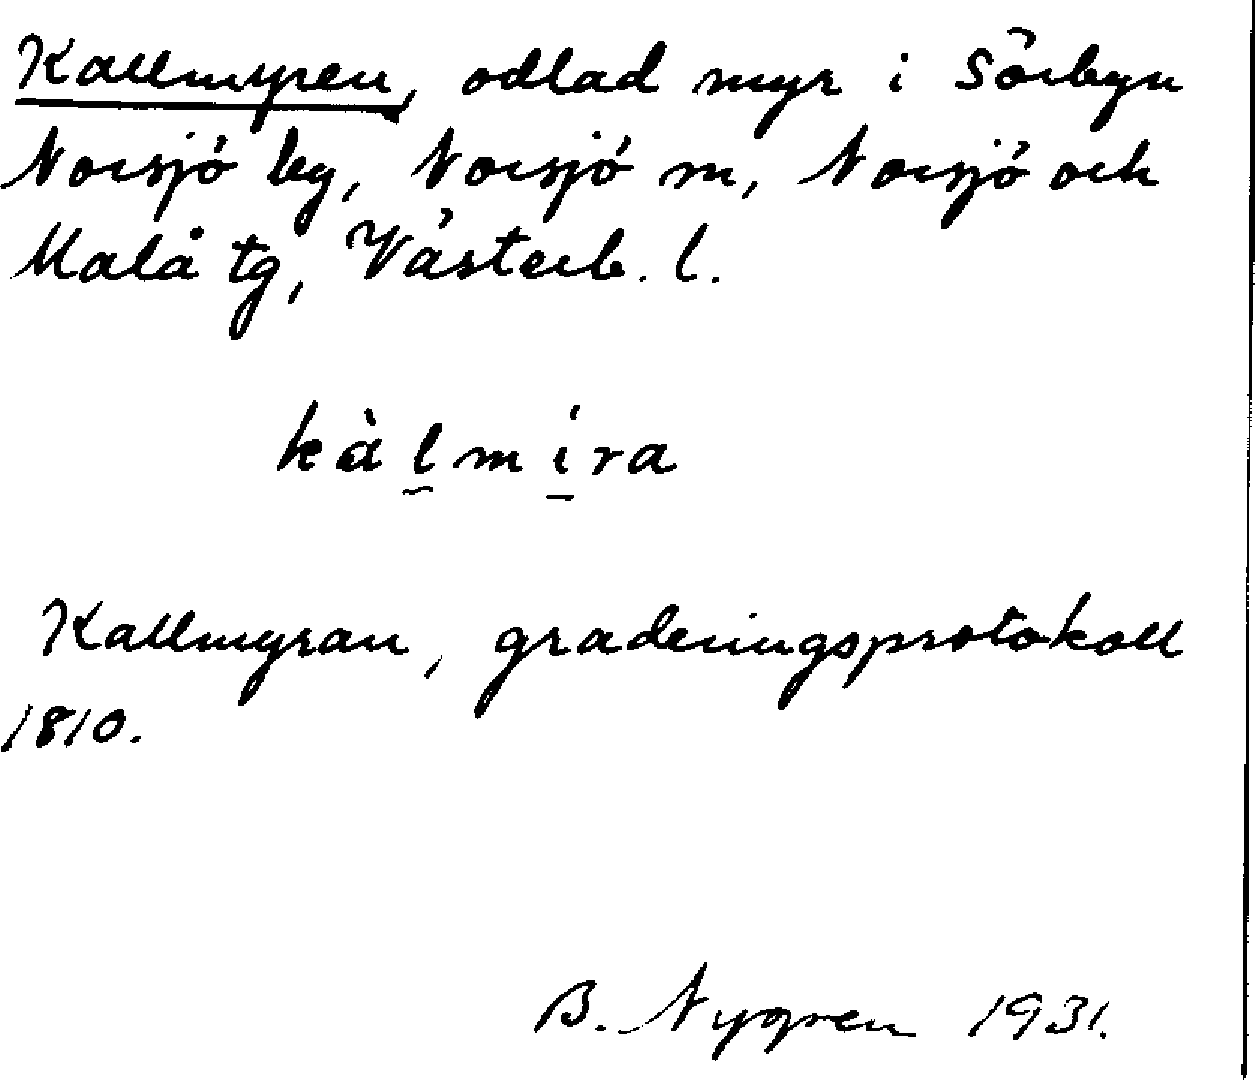 Kallmyren, odlad myr i Sörbyn
Norsjö by, Norsjö m, Norsjö och
Malå tg, Västerb. l.
kàl̰mí̱ra
Kallmyran, graderingsprotokoll
1810.
B. Nygren 1931.